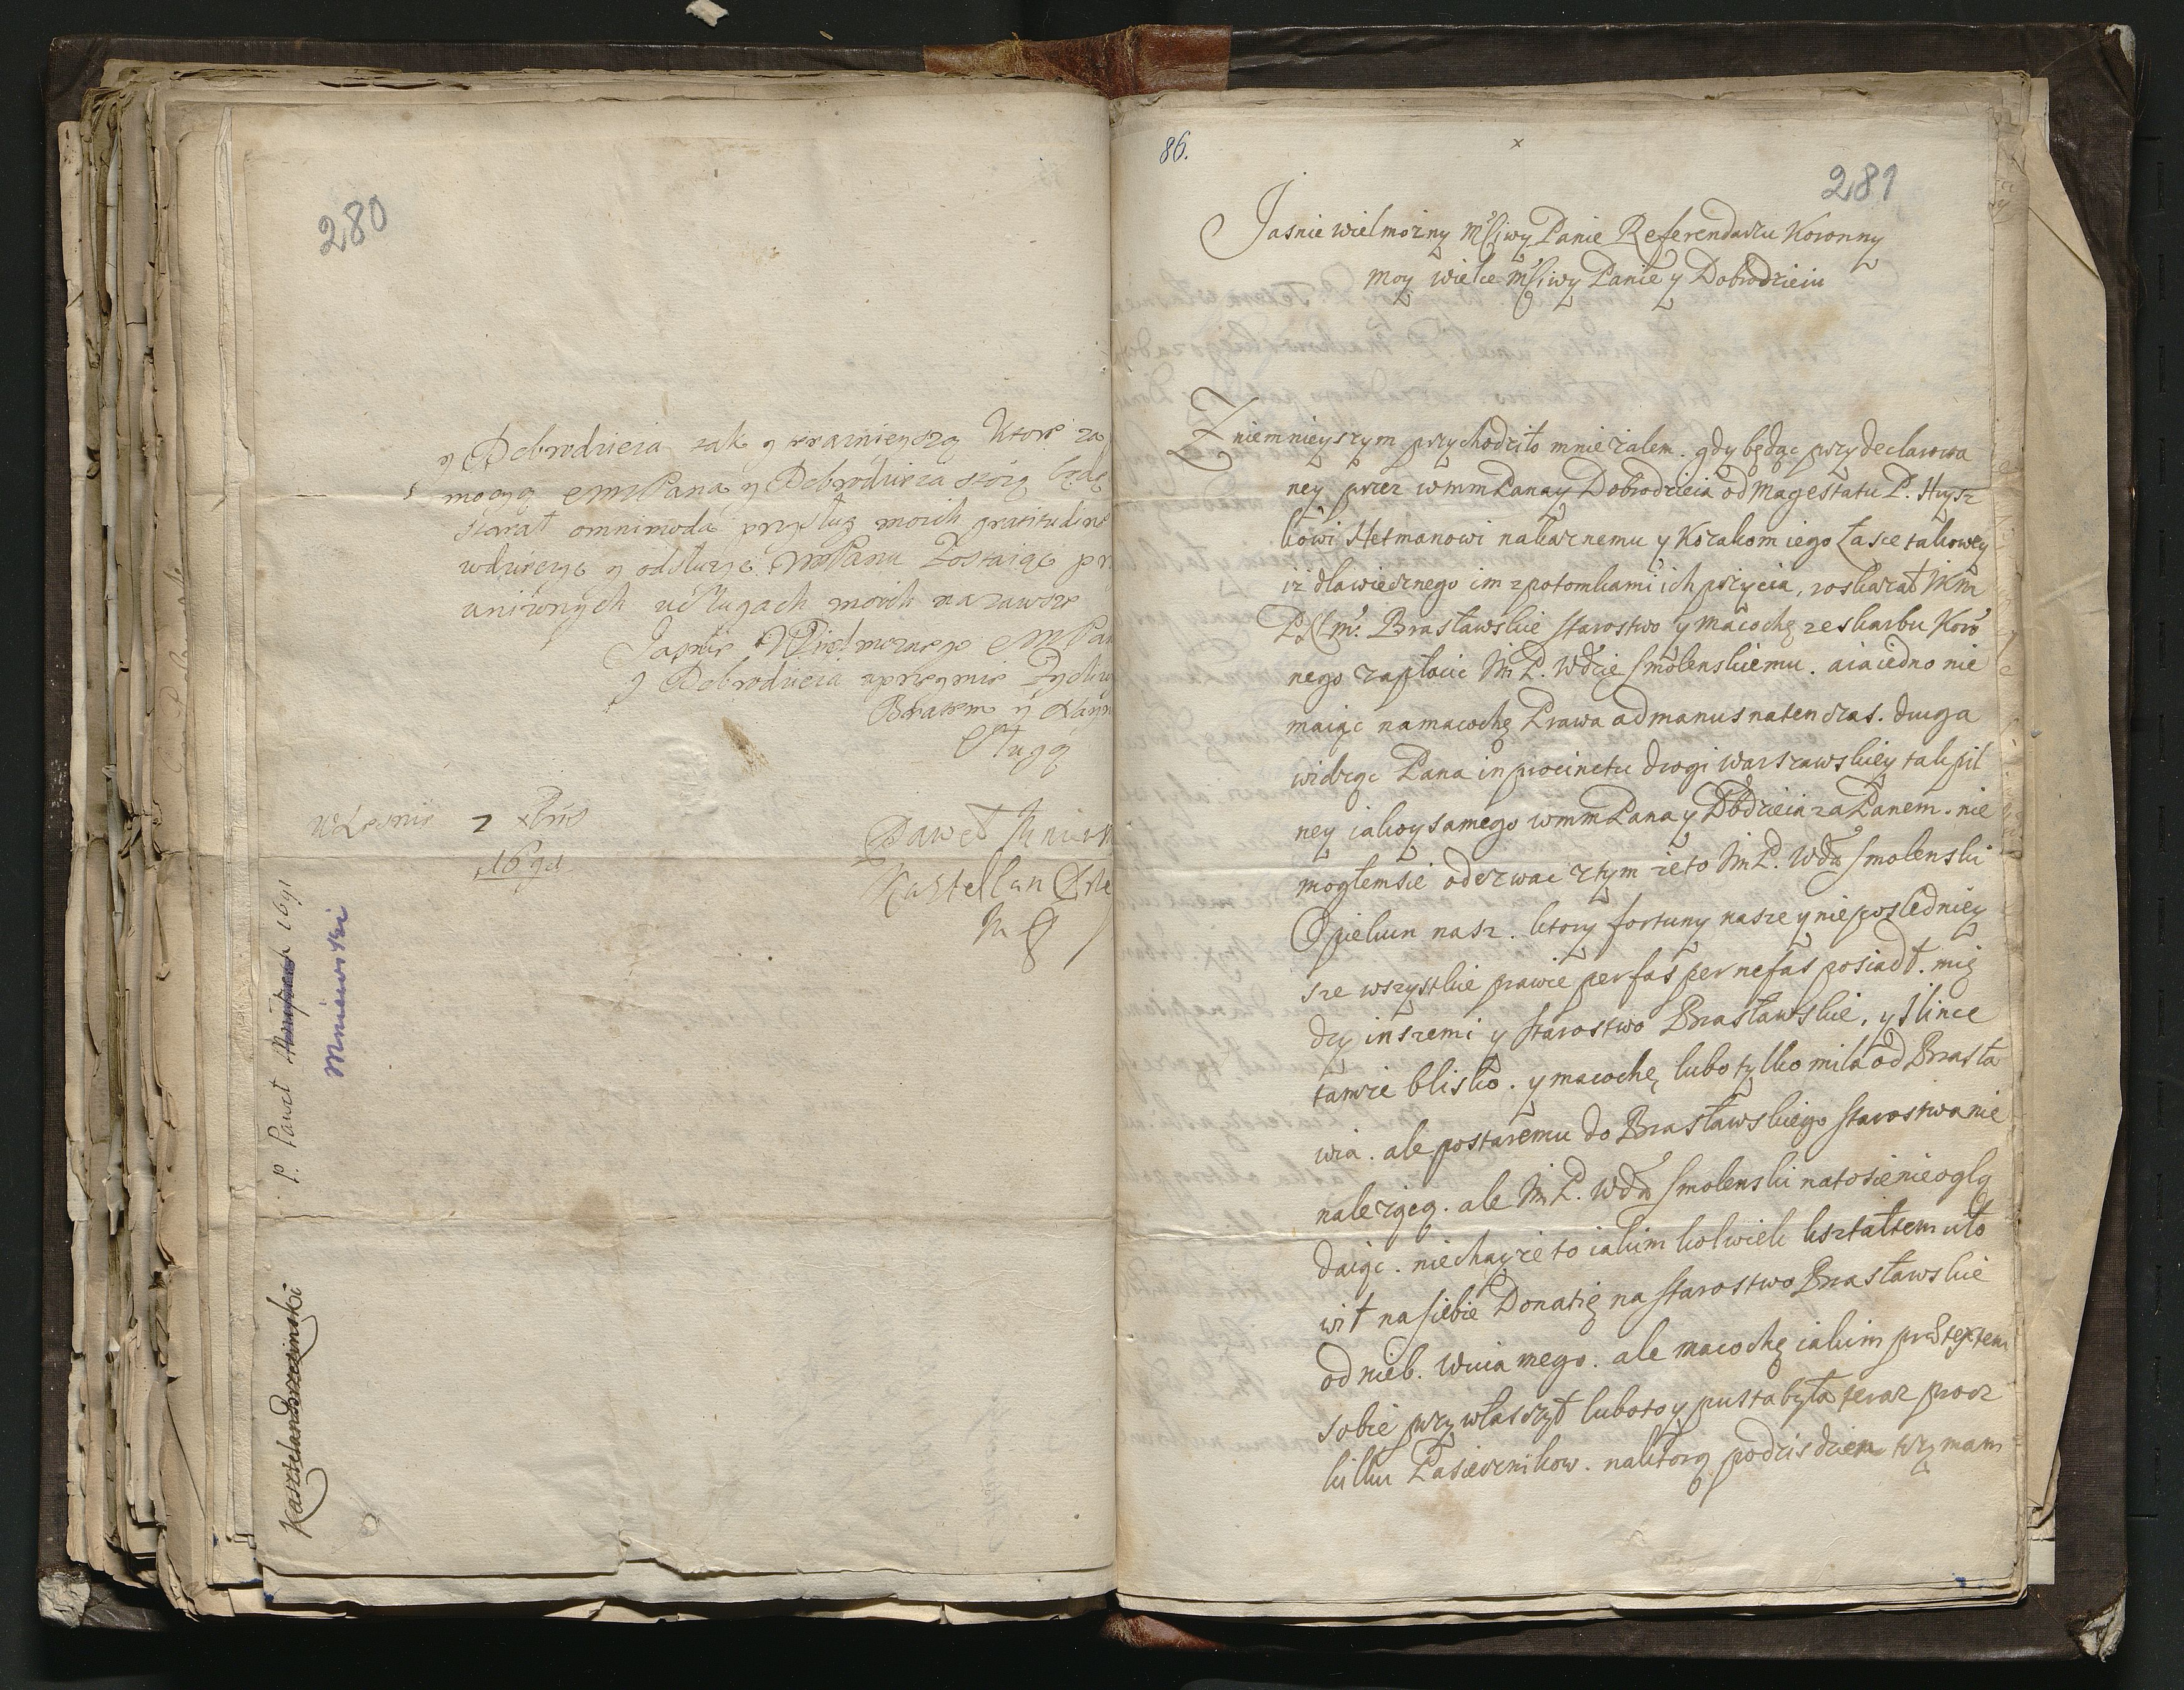 280
y Dobrodzieia tak y krainieyszą Ktore za
mogą MMPana y Dobrodzieia storą będę
starał omnimoda przysług moich gratitudine
wdzięczę y odsłuzyć MMPanu Zostaiąc przy
unizonych usługach moich na zawsze
Jasnie Wielmoznego MMPan
y Dobrodzieia uprzeymie Zycliw
Bratem y
Sługą
w Lesnie 7 xbris
1691
Paweł Mniew
Kasztellan
P. Paweł 1691
Mniewski
Kasztelan Brzezinski
86.
x
281
Jasnie wielmozny Mśiwy Panie Referendarzu Koronny
moy wielce mśiwy Panie y Dobrodzieiu
Z niemnieyszym przychodziło mnie zalem. gdy będąc przy declarowa
ney przez wmmPana y Dobrodzieia od Magestatu P. Hysz
kowi Hetmanowi nakaznemu y Kozakom iego Łasce takowey
iz dla wiecznego im z potomkami ich pozycia, roskazał JKM
P.N.m. Brasławskie starostwo y macochę ze skarbu Koro
nego zapłacic JM P. Wdzie Smolenskiemu. a ia iedno nie
maiąc na macochę Prawa ad manus naten czas. druga
widząc Pana in procinctu drogi warszawskiey tak pil
ney iako y samego wmmPana y Dobdzieia za Panem. nie
mogłem sie oderwac z tym ze to JM P. Wda Smolenski
Opiekun nasz. ktory fortuny nasze y nieposledniey
sze wszystkie prawie per fas per nefas posiadł. mię
dzy inszemi y starostwo Brasławskie, y Ilince
tamze blisko. y macochę lubo tylko mila od Brasła
wia. ale postaremu do Brasławskiego starostwa nie
nalezącą. ale JM P. Wda Smolenski na to sie nie oglą
daiąc. niechayze to iakim kolwiek kształtem uło
wił na siebie Donatię na starostwo Brasławskie
od nieb. wuia mego. ale macochę iakim prætextem
sobie przywłaszczył lubo to y pusta była teraz procz
kilku Pasiecznikow. na ktorą podzis dzien trzymam